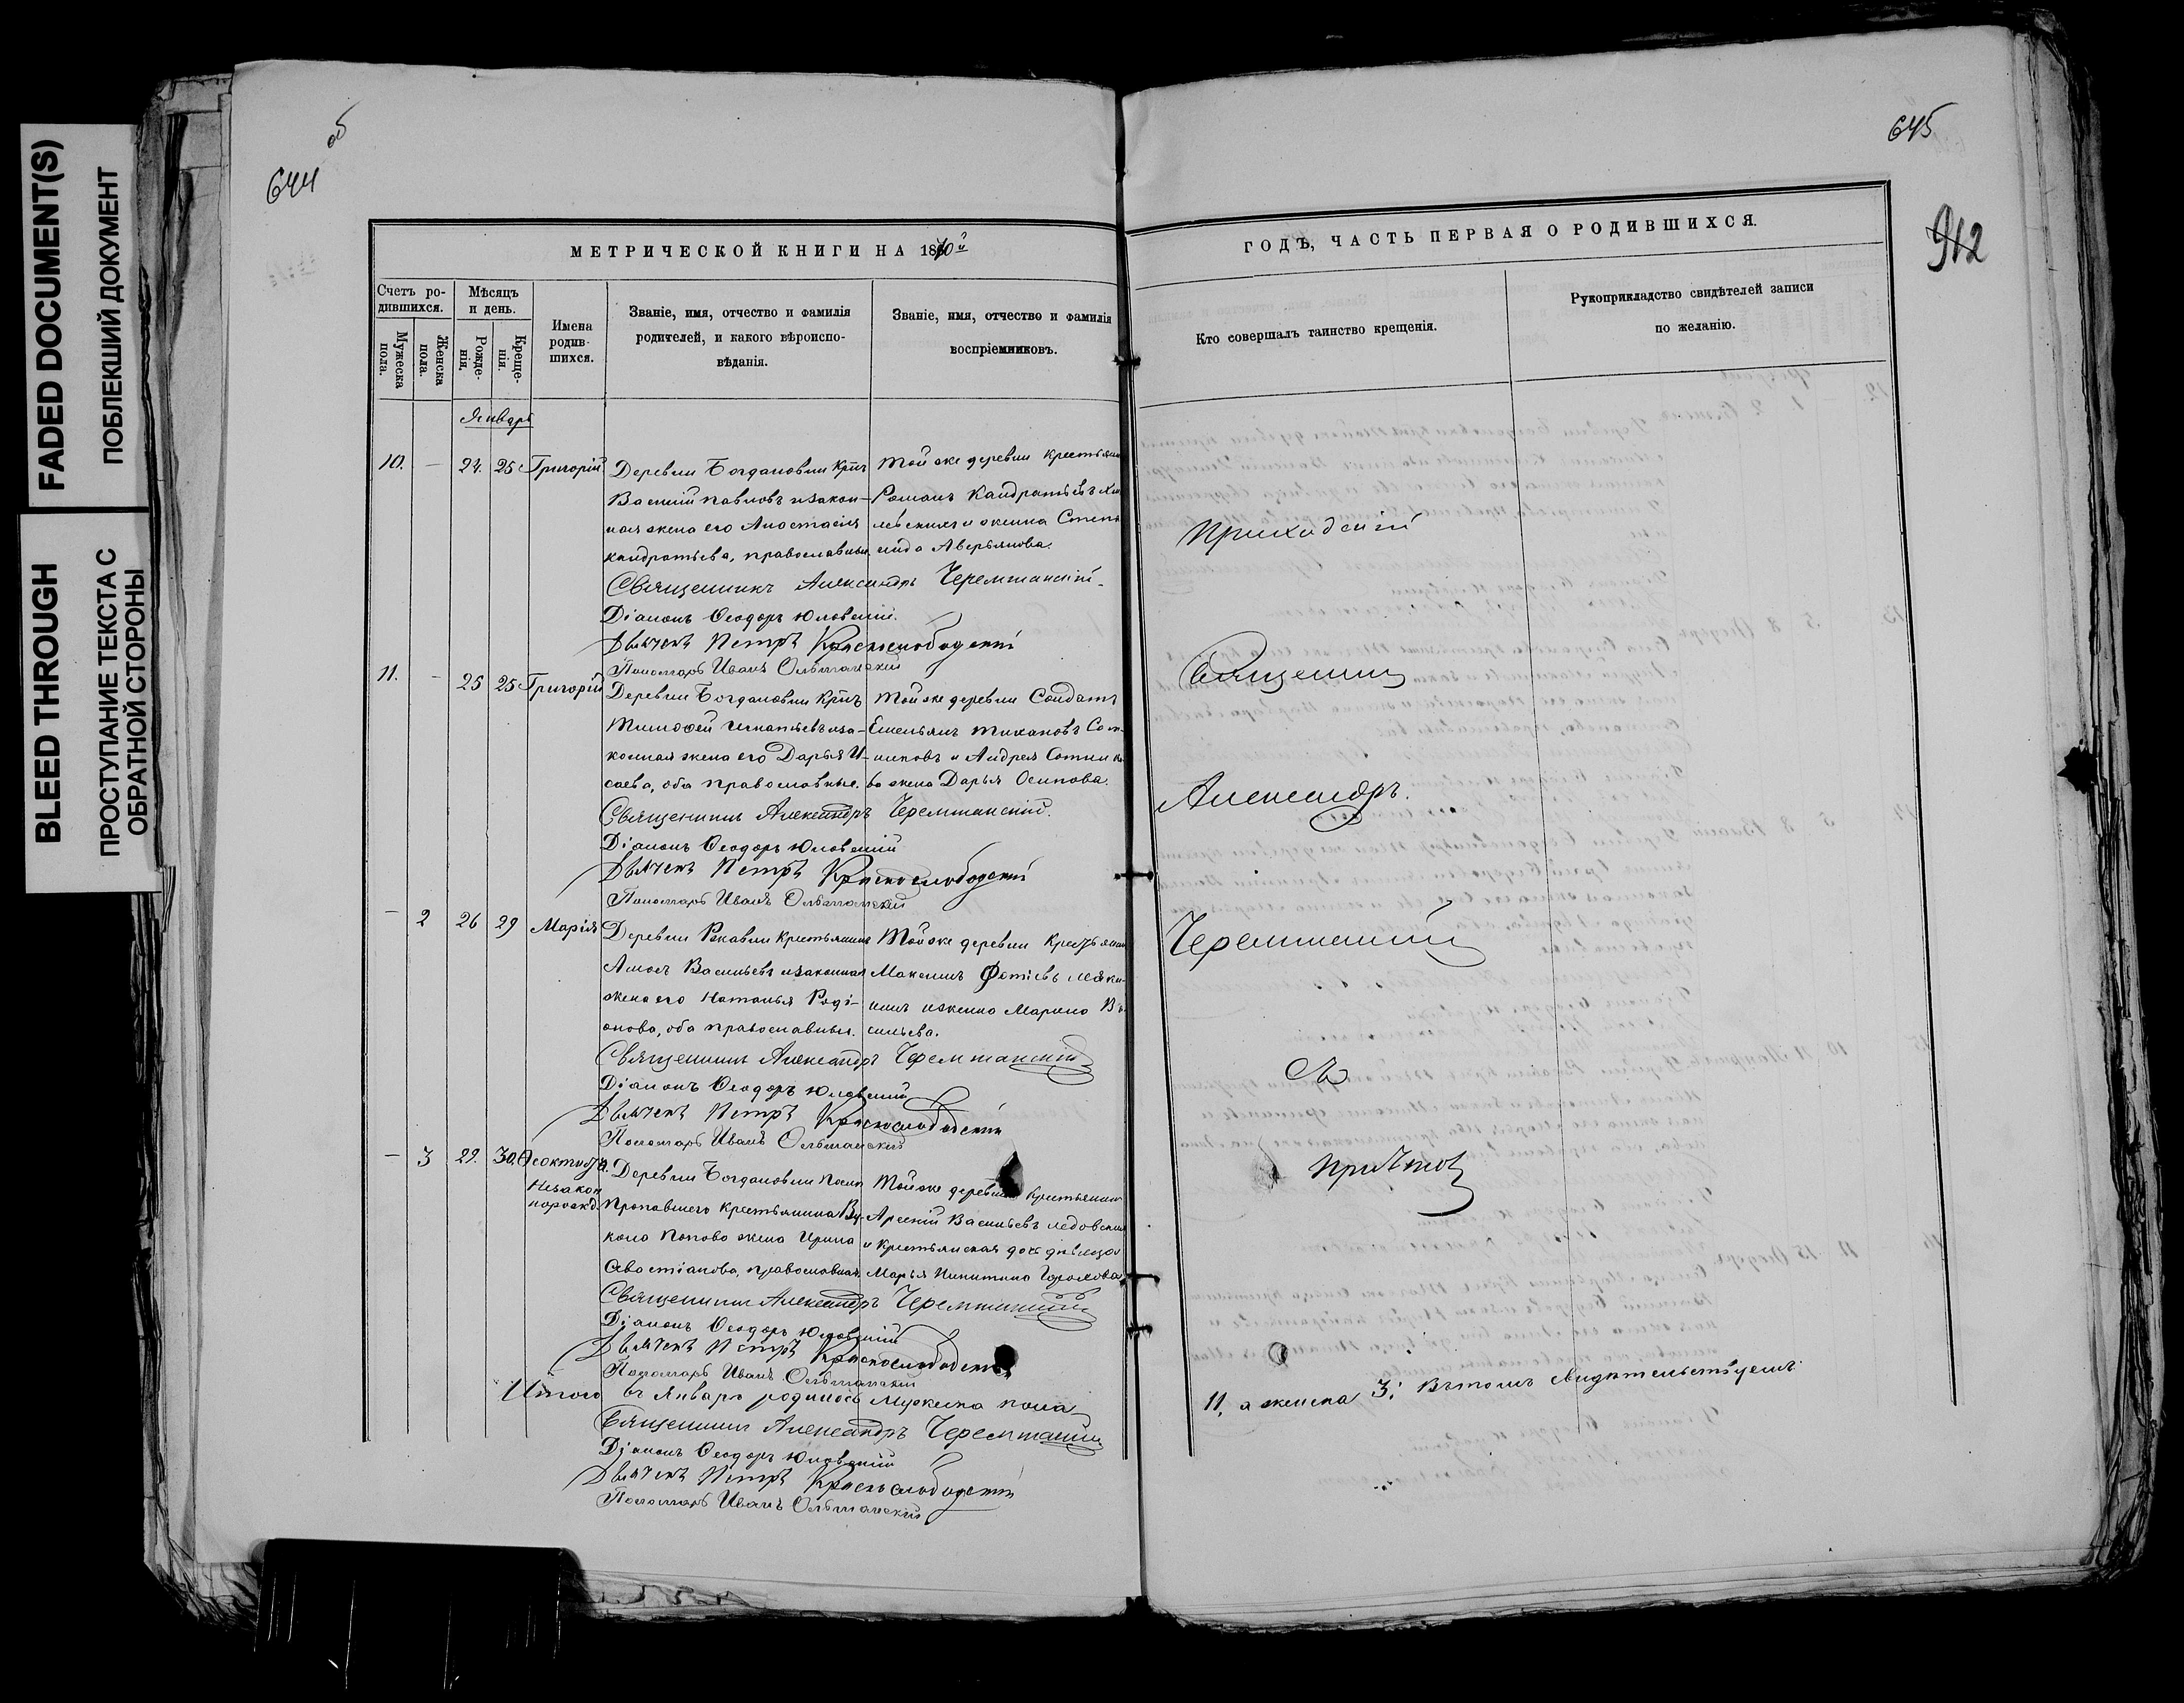 FADED DOCUMENT(S)
ПОБЛЕКШИЙ ДОКУМЕНТ
BLEED THROUGH
ПРОСТУПАНИЕ ТЕКСТА С
ОБРАТНОЙ СТОРОНЫ
644 об
МЕТРИЧЕСКОЙ КНИГИ НА 1870й
Счетъ ро-
дившихся.
Мужеска
пола.
Женска
пола.
Мѣсяцъ
и день.
Рожде-
нія.
Креще-
нія.
Имена
родив-
шихся.
Званіе, имя, отчество и фамилія
родителей, и какого вѣроиспо-
вѣданія.
Званіе, имя, отчество и фамилія
воспріемниковъ.
Январь
10. — 24. 25 Григорій
Деревни Богдановки
Василій Павловъ и закон-
ная жена его Анастасія
Кандратьева, православные.
Той же деревни крестьянин
Романъ Кандратьевъ
и женка Степа
нида Аверьянова.
Священникъ Александръ Черемшанскій.
Діаконъ Ѳеодоръ Юловскій.
Дьячекъ Петръ Краснослободскій
Пономарь Иванъ Ольшанскій
11. — 25 25 Григорій
Деревни Богдановки
Тимофей Игнатьевъ и за-
конная жена его Дарья И-
саева, оба православные.
Той же деревни Солдатъ
Емельянъ Тихановъ Сот-
никовъ и Андрея Сотнико
ва жена Дарья Осипова.
Священникъ Александръ Черемшанскій.
Діаконъ Ѳеодоръ Юловскій
Дьячекъ Петръ Краснослободскій
Пономарь Иванъ Ольшанскій
— 2 26 29 Марія
Деревни крестьянинъ
Васильевъ и законная
жена его Наталья Роді-
онова, оба православные.
Той же деревни крестьянин
Максимъ Фотіевъ
и женка Марина Ва
сильева.
Священникъ Александръ Черемшанскій
Діаконъ Ѳеодоръ Юловскій
Дьячекъ Петръ Краснослободскій
Пономарь Иванъ Ольшанскій
— 3 29. 30. Ѳеоктиста.
Незакон
норожд.
Деревни Богдановки
пропавшего крестьянина Ву-
кола Попова жена Ирина
Севостіанова, православная.
Той же деревни крестьянинъ
Арсеній Васильевъ
и крестьянская дочь дѣвица
Марья Никитина
Священникъ Александръ Черемшанскій
Діаконъ Ѳеодоръ Юловскій
Дьячекъ Петръ Краснослободскій
Пономарь Иванъ Ольшанскій
Итого въ Январѣ родилось мужеска пола
Священникъ Александръ Черемшанскій
Діаконъ Ѳеодоръ Юловскій
Дьячекъ Петръ Краснослободскій
Пономарь Иванъ Ольшанскій
645
912
ГОДЪ, ЧАСТЬ ПЕРВАЯ О РОДИВШИХСЯ.
Кто совершалъ таинство крещенія.
Рукоприкладство свидѣтелей записи
по желанію.
Приходскій
Священникъ
Александръ.
Черемшанскій
Съ
причтомъ
11, а женска 3. Въ томъ свидѣтельствуемъ